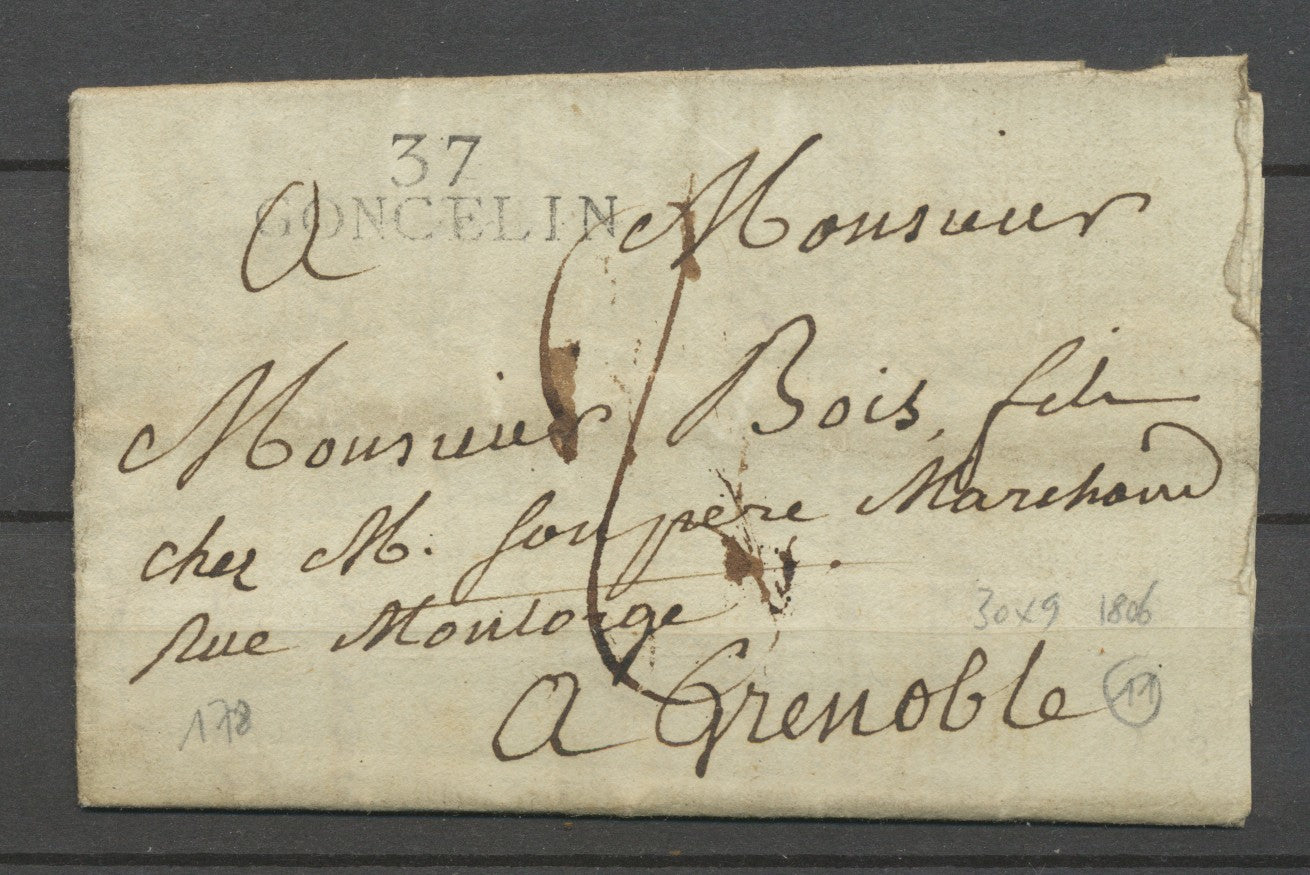 37
GONCELIN
A Monsieur
Monsieur Bois, fils
chez M. son père Marchand
rue Montorge
30x9 1806
A Grenoble
178